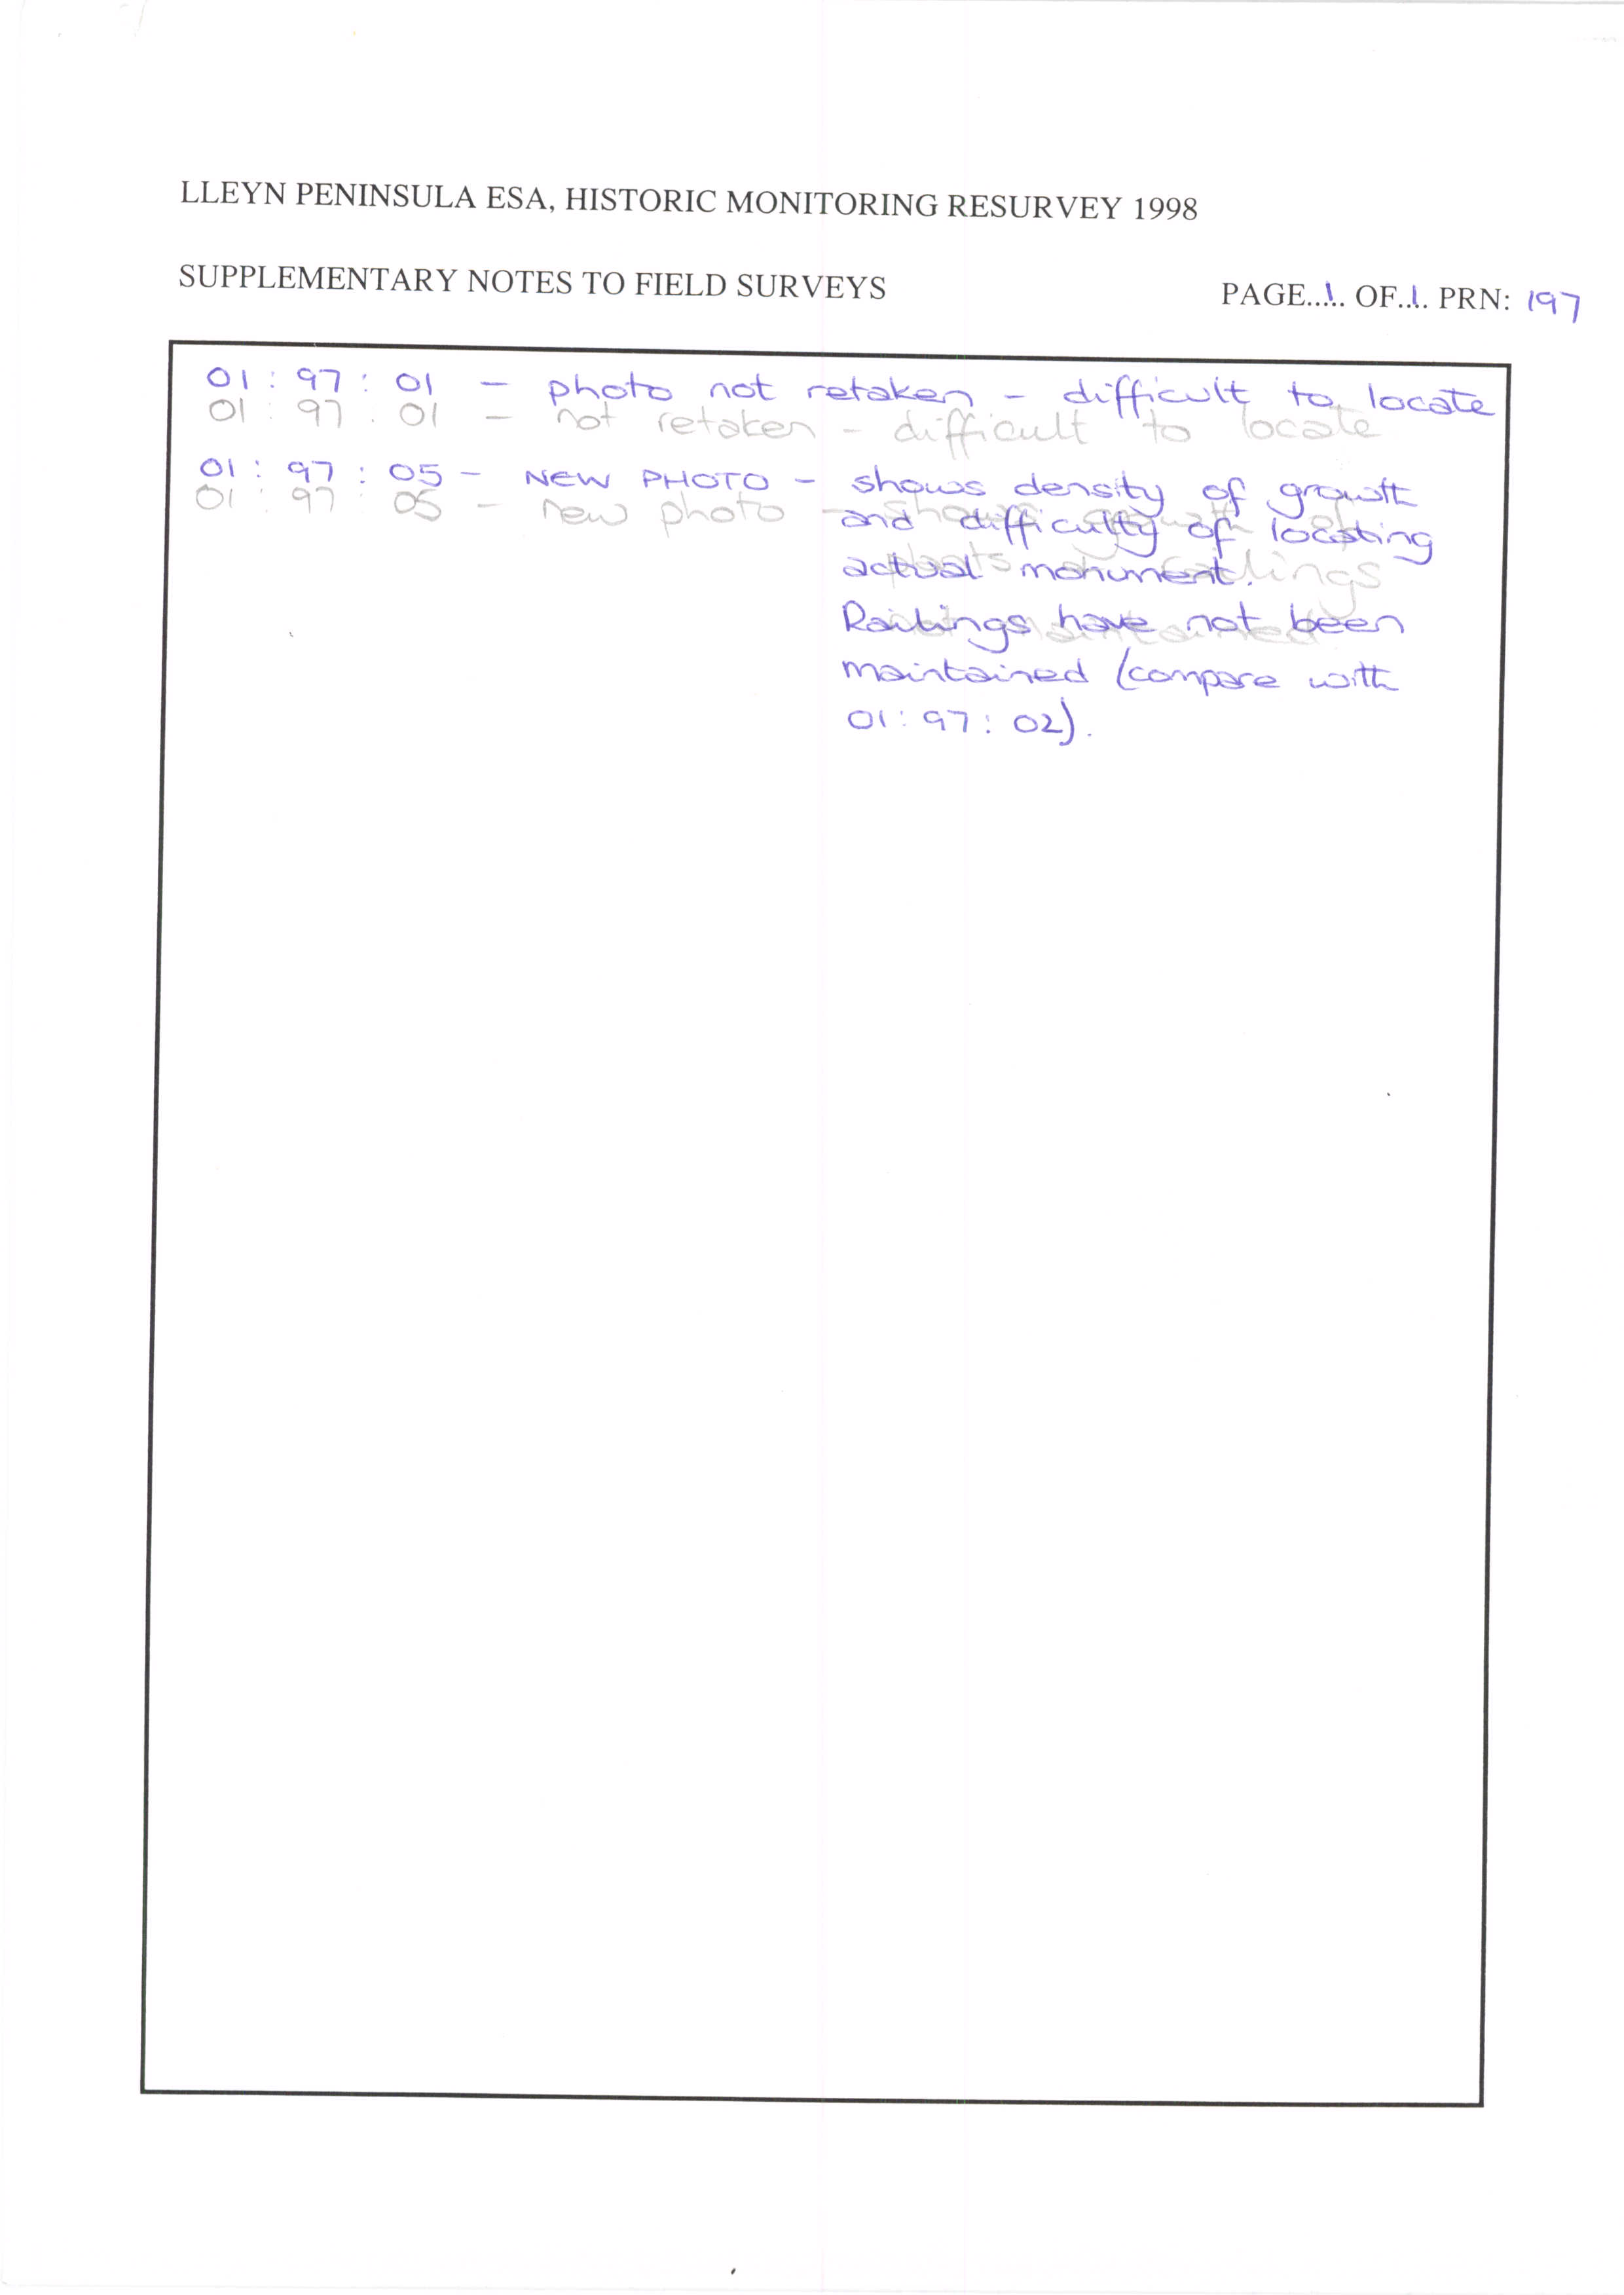 LLEYN PENINSULA ESA, HISTORIC MONITORING RESURVEY 1998
SUPPLEMENTARY NOTES TO FIELD SURVEYS
PAGE..1.. OF..1.. PRN: 197
01 : 97 : 01 – photo not retaken – difficult to locate
01 : 97 : 01 – not retaken – difficult to locate
01 : 97 : 05 – NEW PHOTO – shows density of growth
01 : 97 : 05 – new photo –
and difficulty of locating
actual monument.
Railings have not been
maintained (compare with
01 : 97 : 02).